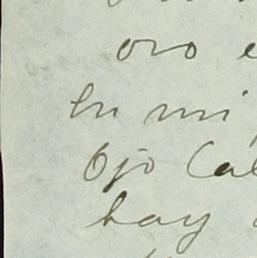 oro
en mi
Ojo Cal
hay